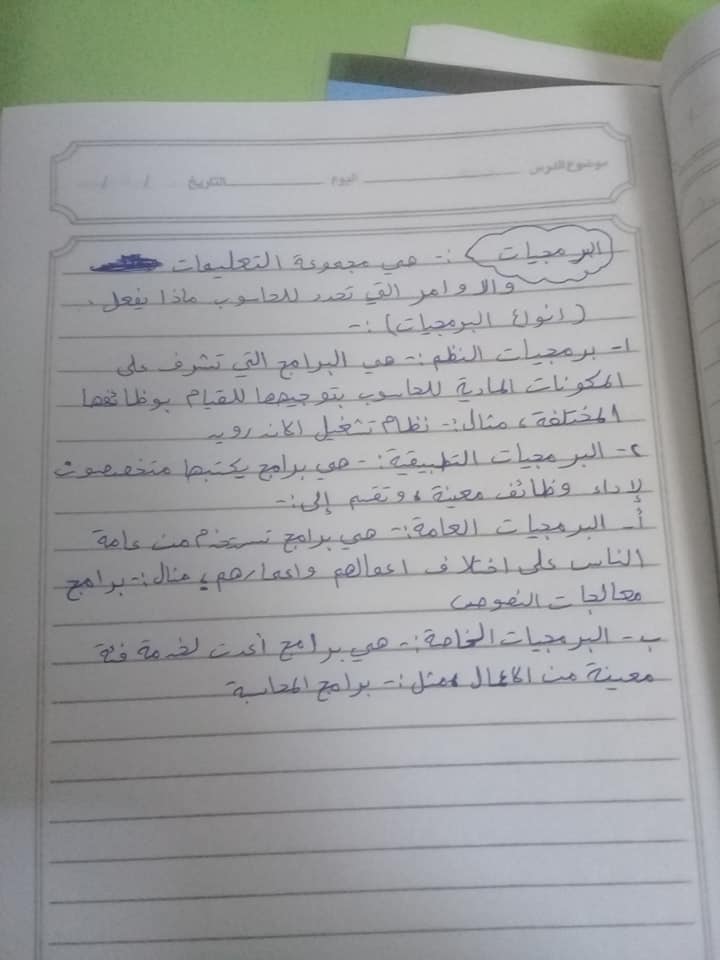 موضوع الدرس ــــــــــــ اليوم ــــــــــــ التاريخ / /
البرمجيات :- هي مجموعة التعليمات
والاوامر التي تحدد للحاسوب ماذا يفعل.
(انواع البرمجيات) :-
١- برمجيات النظم :- هي البرامج التي تشرف على
المكونات المادية للحاسوب بتوجيهها للقيام بوظائفها
المختلفة، مثال :- نظام تشغيل الاندرويد
٢- البرمجيات التطبيقية :- هي برامج يكتبها متخصصون
لإداء وظائف معينة، وتقسم إلى :-
أ- البرمجيات العامة :- هي برامج تستخدم من عامة
الناس على اختلاف اعمالهم واعمارهم، مثال :- برامج
معالجات النصوص
ب- البرمجيات الخاصة :- هي برامج أعدت لخدمة فئة
معينة من الاعمال، مثل :- برامج المحاسبة